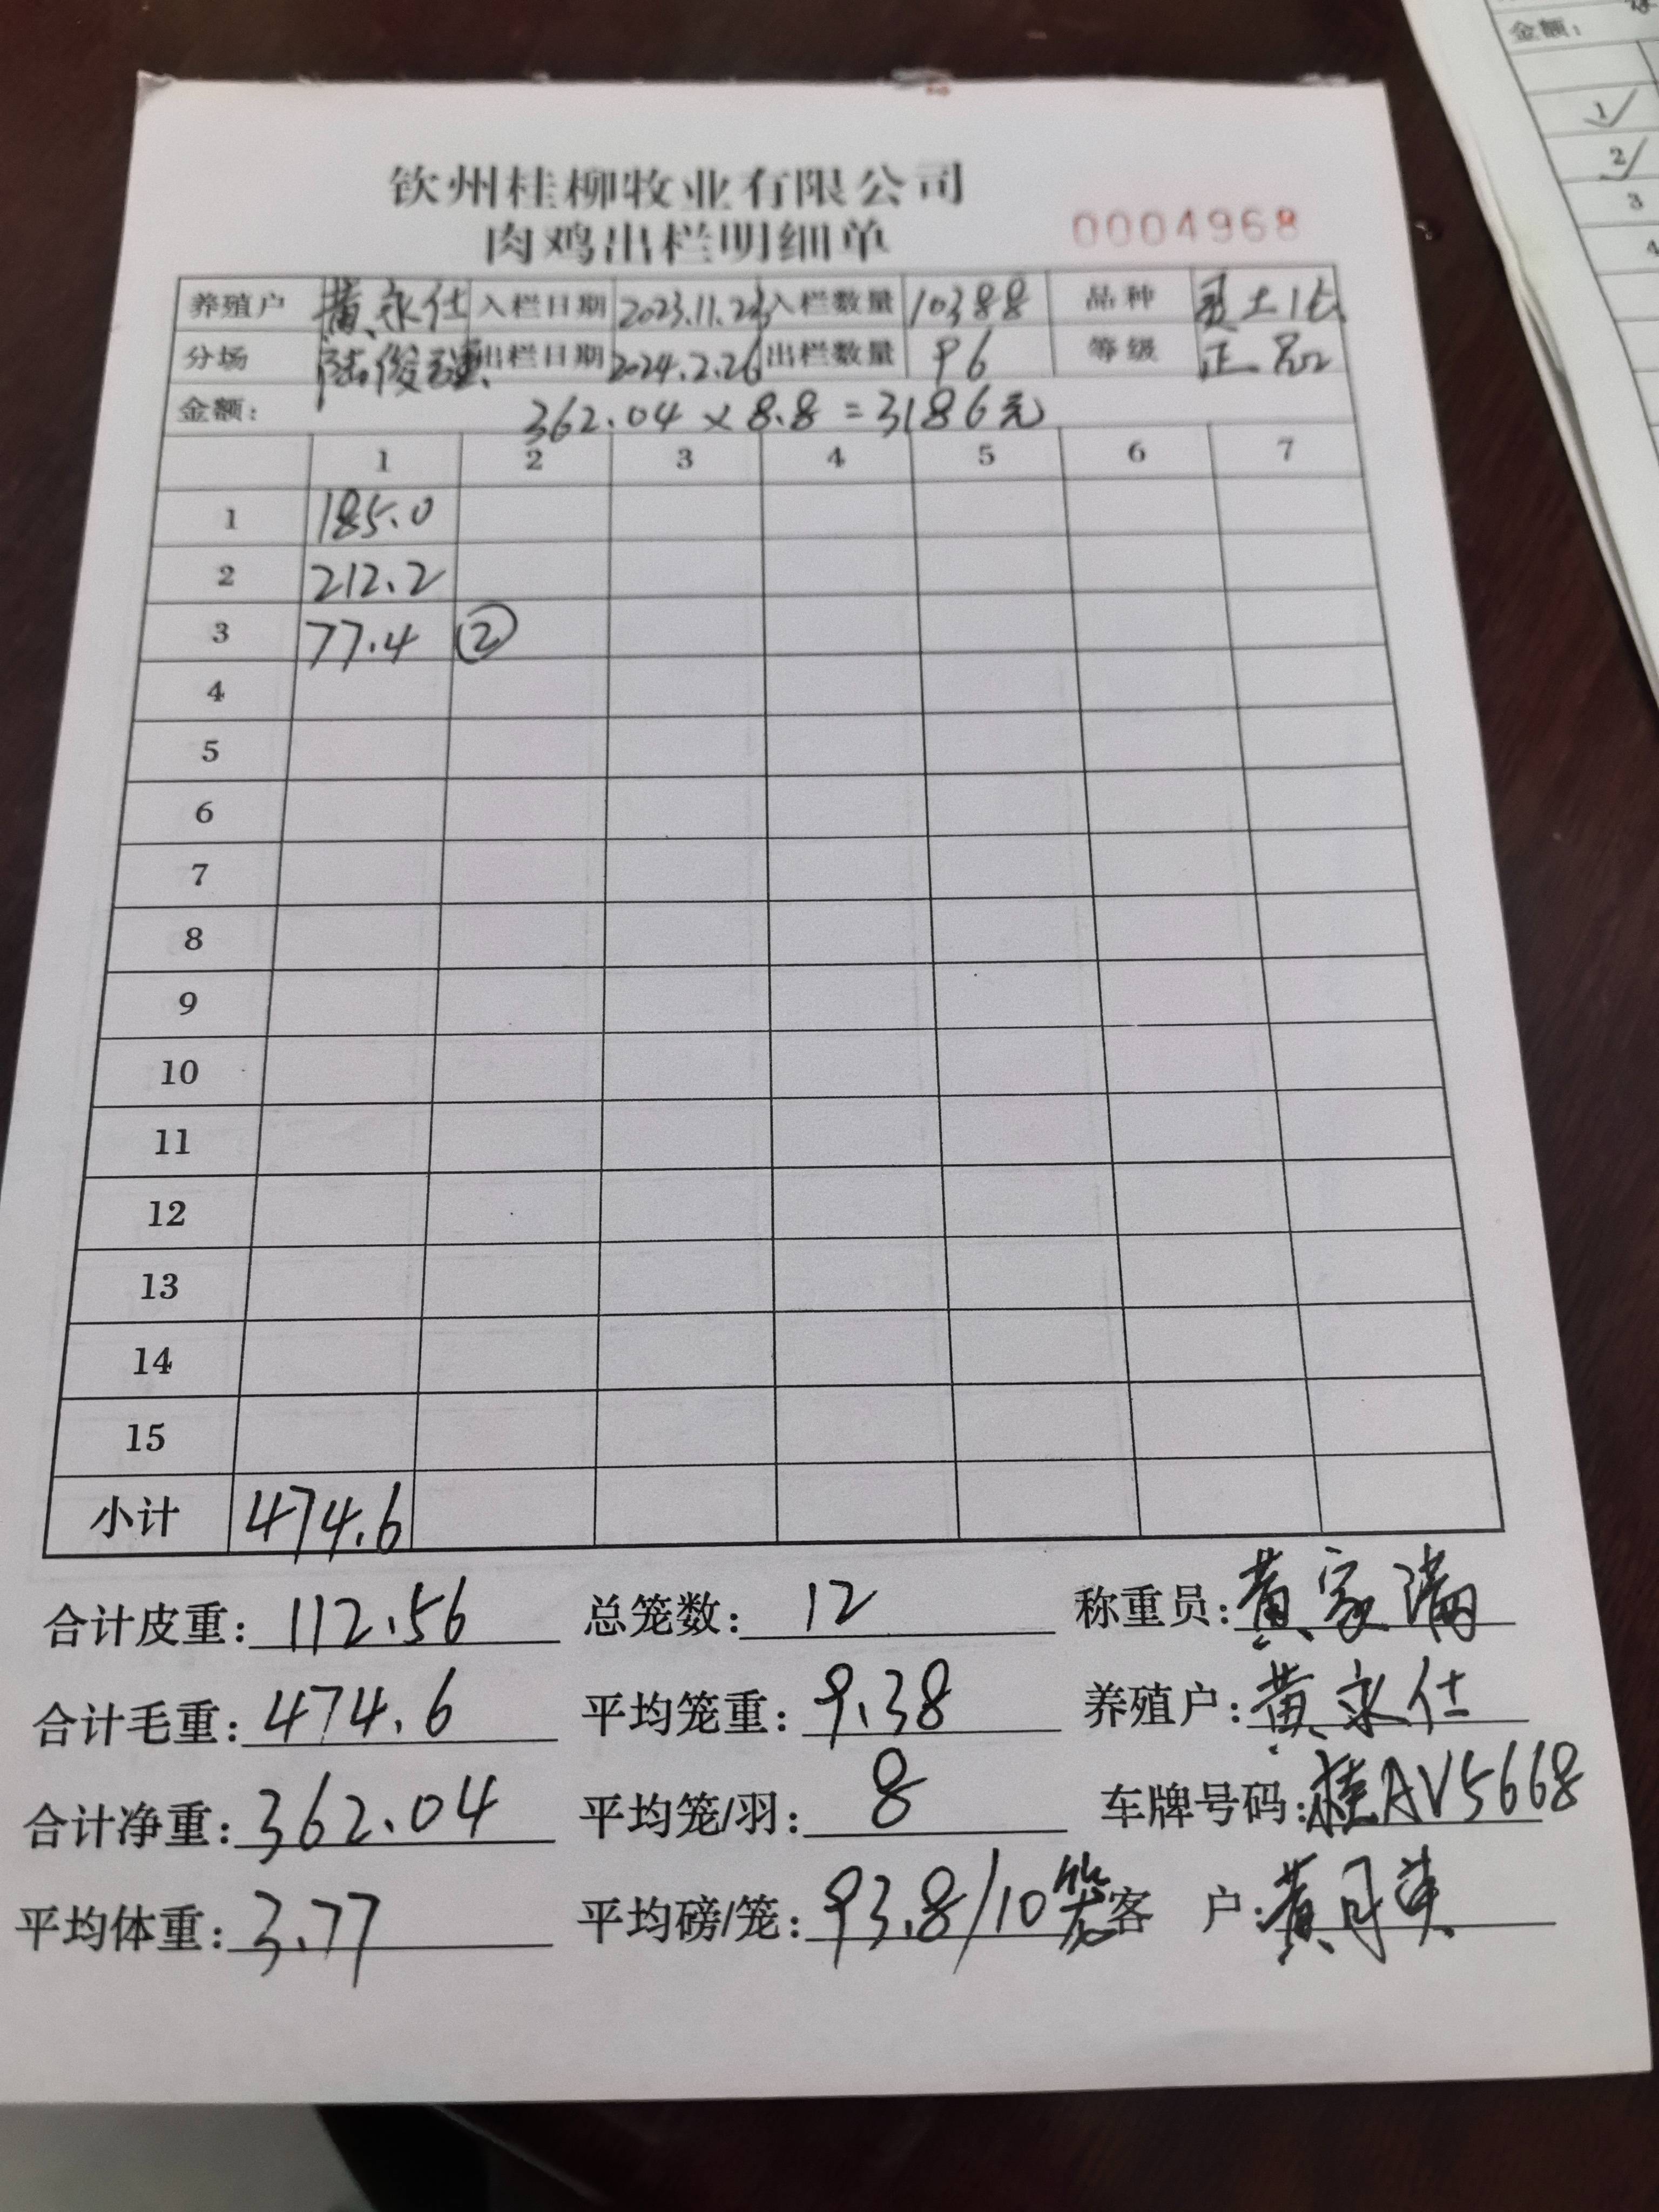 钦州桂柳牧业有限公司
肉鸡出栏明细单
0004968
养殖户 黄永仕 入栏日期 2023.11.23 入栏数量 10388 品种 土1
分场 陆俊 出栏日期 2024.2.26 出栏数量 96 等级 正品
金额: 362.04 × 8.8 = 3186元
1 2 3 4 5 6 7
1 185.0
2 212.2
3 77.4 ②
4
5
6
7
8
9
10
11
12
13
14
15
小计 474.6
合计皮重: 112.56 总笼数: 12 称重员: 黄家满
合计毛重: 474.6 平均笼重: 9.38 养殖户: 黄永仕
合计净重: 362.04 平均笼/羽: 8 车牌号码: 桂AV5668
平均体重: 3.77 平均磅/笼: 93.8/10笼 客 户: 黄月
金额:
1
2
3
4